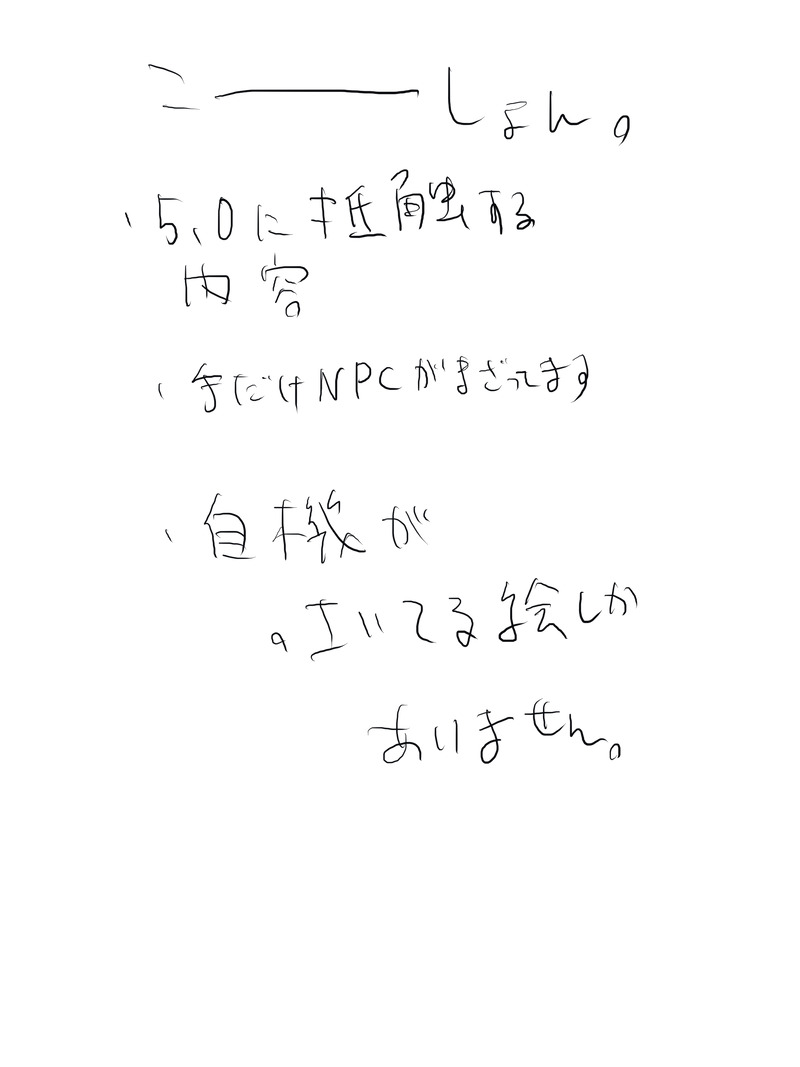 こーしょん。
・5.0に抵触する
内容
・手だけNPCがまざってます
・自機が
いてる絵しか
ありません。